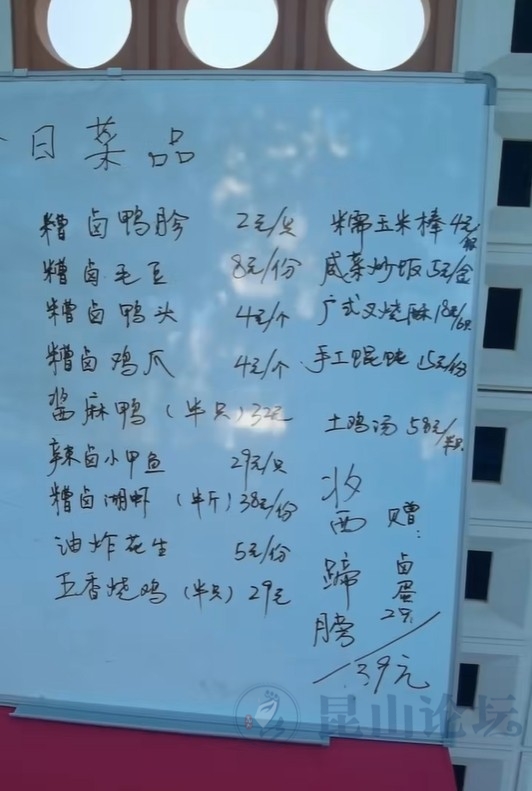 今日菜品
糟卤鸭胗 2元/只
糟卤毛豆 8元/份
糟卤鸭头 4元/个
糟卤鸡爪 4元/个
酱麻鸭（半只）32元
辣卤小甲鱼 29元/只
糟卤湖虾（半斤）38元/份
油炸花生 5元/份
五香烧鸡（半只）29元
糯玉米棒 4元/根
咸菜炒饭 5元/盒
广式叉烧酥 18元/6只
手工馄饨 15元/份
土鸡汤 58元/半只
水西蹄膀
赠：卤蛋2只
/39元
昆山论坛